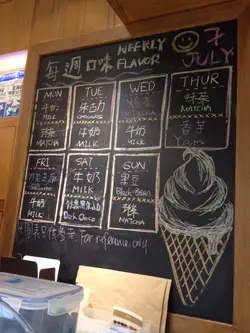 每週口味 WEEKLY FLAVOR 7 JULY
MON
牛奶
MILK
抹茶
MATCHA
TUE
朱古力
CHOCOLATE
牛奶
MILK
WED
MATCHA
牛奶
MILK
THUR
抹茶
MATCHA
香芋
Yam
FRI
Sesame
牛奶
MILK
SAT
牛奶
MILK
Dark Choco
SUN
黑豆
Black Bean
抹茶
MATCHA
只供參考 For reference only